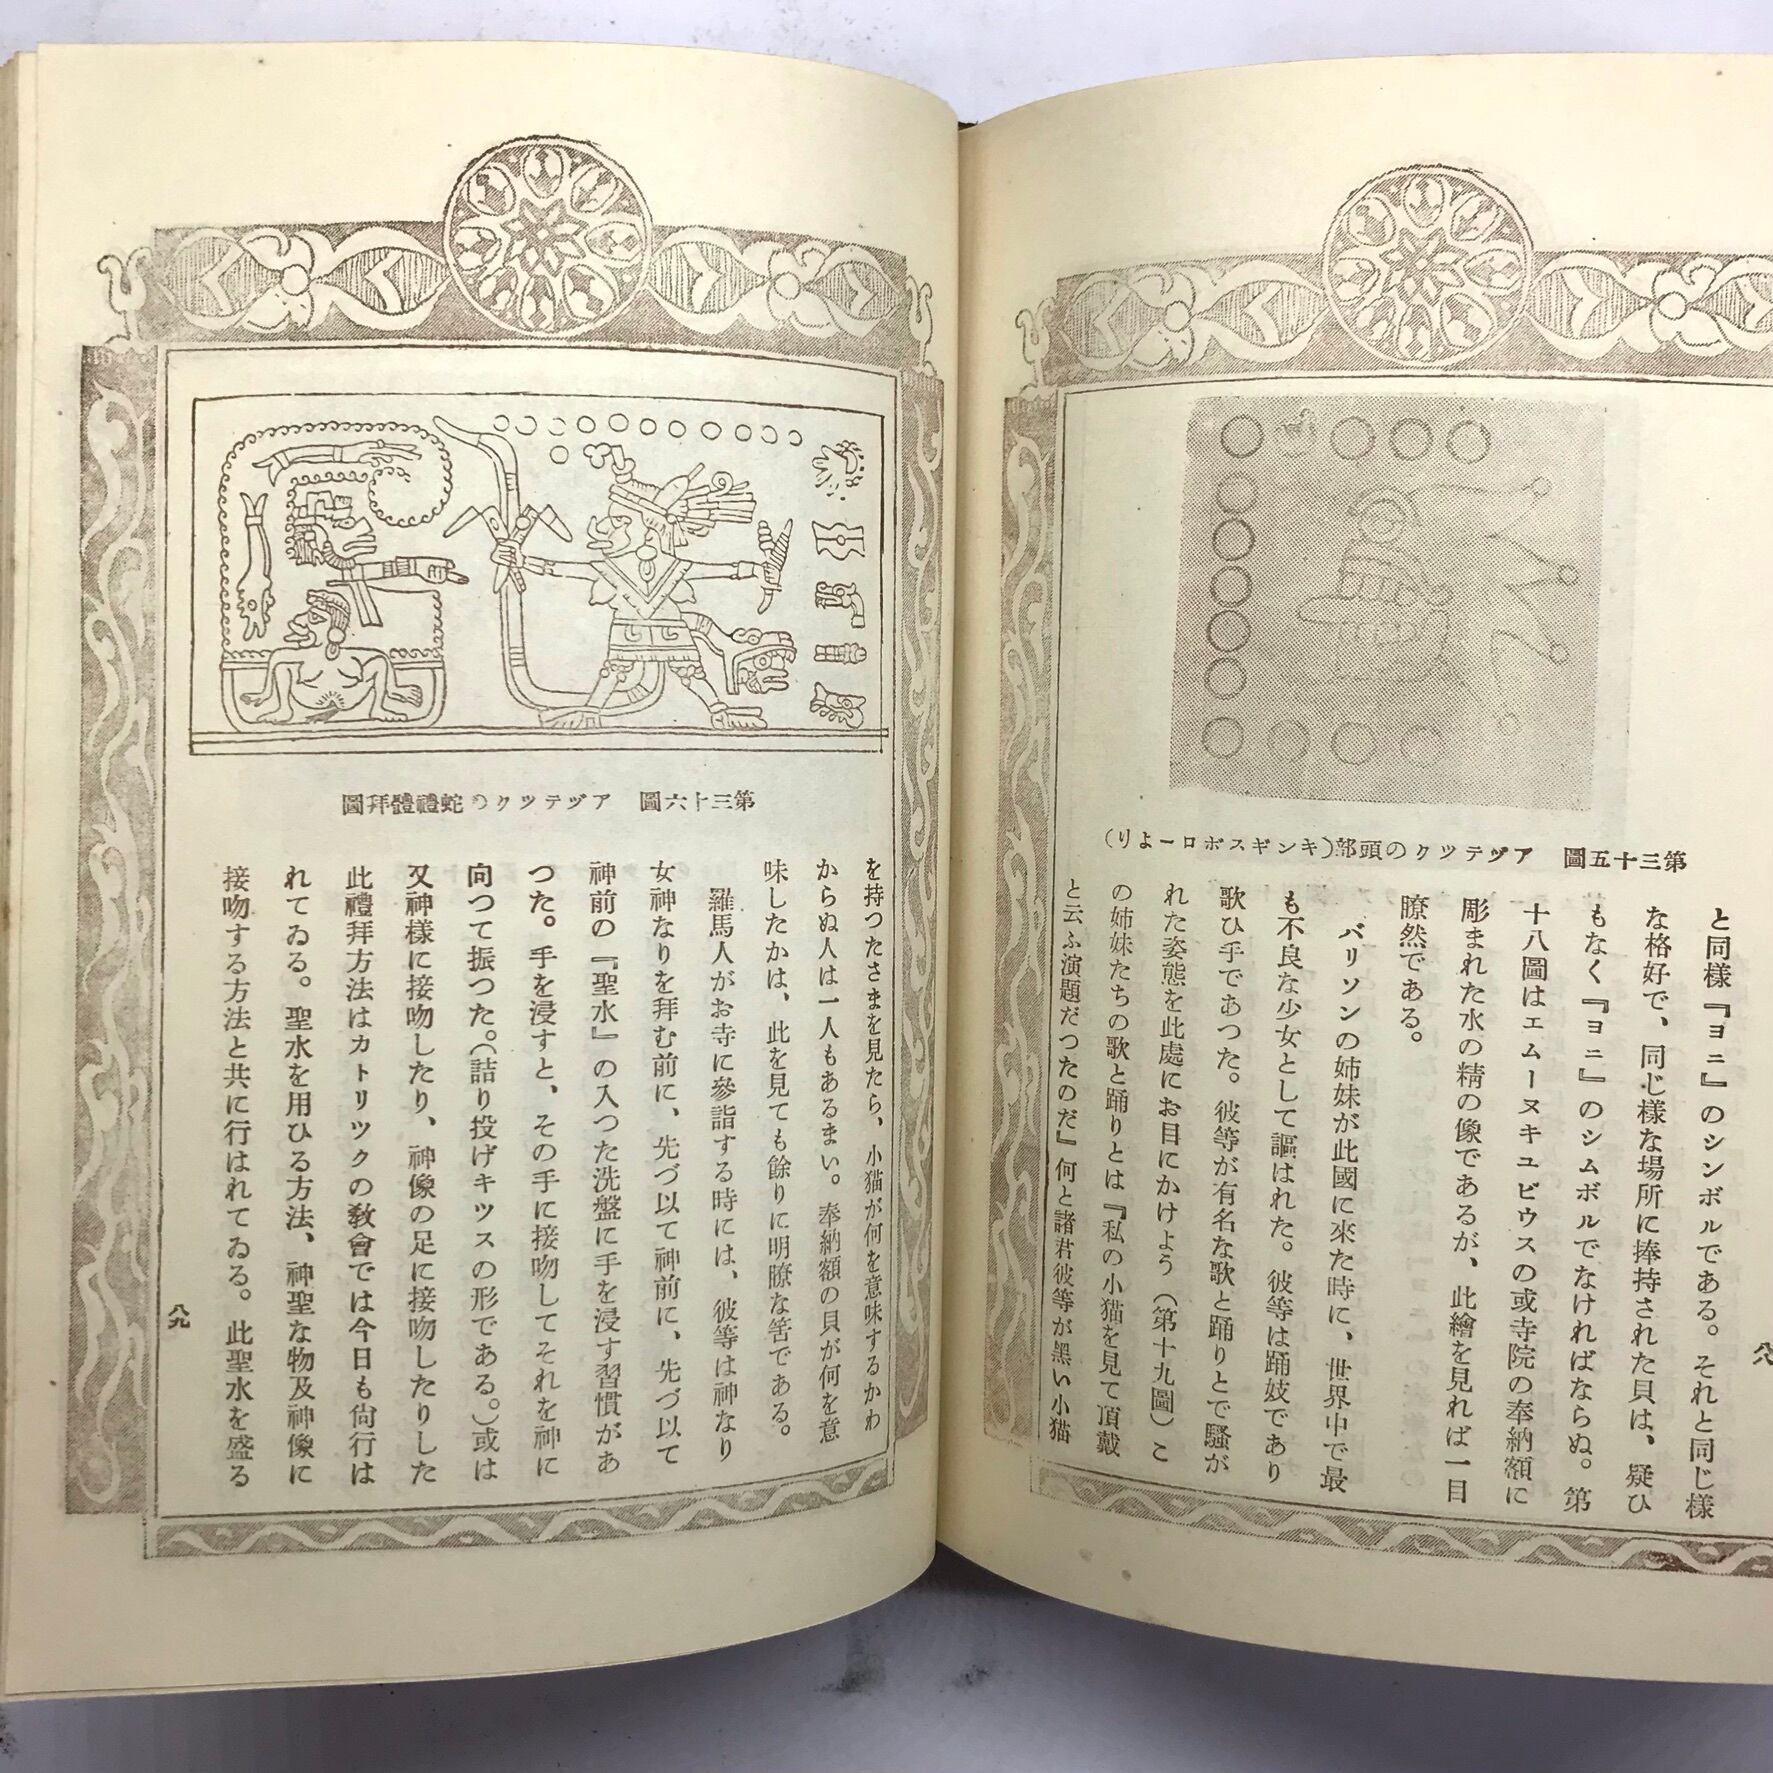 第三十五圖　アヅテックの頭部(キンギスボローより)
と同樣『ヨニ』のシンボルである。それと同じ樣
な格好で、同じ樣な場所に捧持された貝は、疑ひ
もなく『ヨニ』のシムボルでなければならぬ。第
十八圖はエムーヌキユビウスの或寺院の奉納額に
彫まれた水の精の像であるが、此繪を見れば一目
瞭然である。
バリソンの姉妹が此國に來た時に、世界中で最
も不良な少女として謳はれた。彼等は踊妓であり
歌ひ手であつた。彼等が有名な歌と踊りとで騷が
れた姿態を此處にお目にかけよう(第十九圖)こ
の姉妹たちの歌と踊りとは『私の小猫を見て頂戴
と云ふ演題だつたのだ』何と諸君彼等が黑い小猫
第三十六圖　アヅテツクの蛇禮體拜圖
を持つたさまを見たら、小猫が何を意味するかわ
からぬ人は一人もあるまい。奉納額の貝が何を意
味したかは、此を見ても餘りに明瞭な筈である。
羅馬人がお寺に參詣する時には、彼等は神なり
女神なりを拜む前に、先づ以て神前に、先づ以て
神前の『聖水』の入つた洗盤に手を浸す習慣があ
つた。手を浸すと、その手に接吻してそれを神に
向つて振つた。(詰り投げキツスの形である。)或は
又神樣に接吻したり、神像の足に接吻したりした
此禮拜方法はカトリツクの敎會では今日も尙行は
れてゐる。聖水を用ひる方法、神聖な物及神像に
接吻する方法と共に行はれてゐる。此聖水を盛る
八九